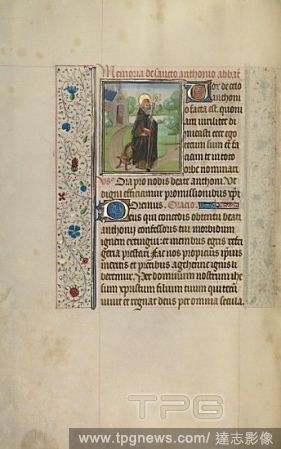 Memoria de sancto anthonio abbat
Vox de celo
anthoni
o facta est quon
iam viriliter di
micasti ecce ego
tecum sum et fa
ciam te in toto
orbe nominari
Vs Ora pro nobis beate anthoni Vt
digni efficiamur promissionibus xpi
Oremus. Oracio
Deus qui concedis obtentu beati
anthonij confessoris tui morbidum
ignem extingui et membris egris refri
geria prestari fac nos propicius ipsius
meritis et precibus a gehenne ignis li
beremur. Per dominum nostrum ihe
sum xpristum filium tuum qui tecum
viuit et regnat deus per omnia secula.
TPG
www.tpgnews.com/ 達志影像